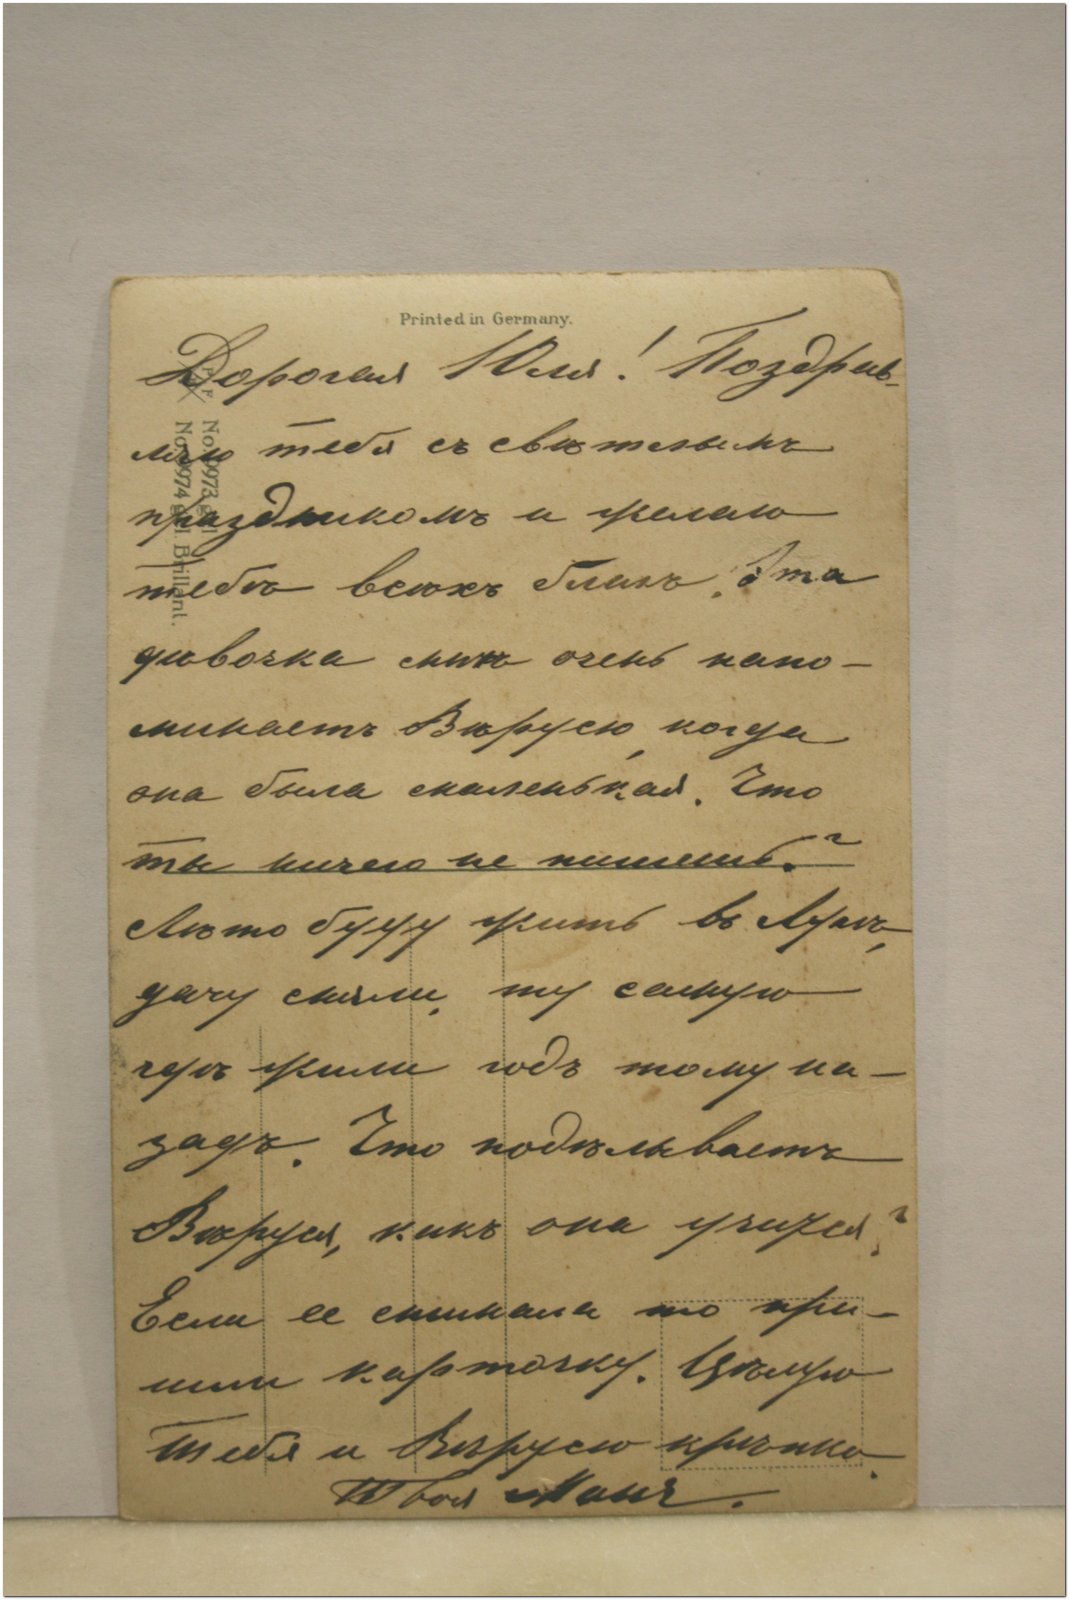 Printed in Germany.
Дорогая Юля! Поздрав-
ляю тебя съ свѣтлымъ
праздникомъ и желаю
тебѣ всѣхъ благъ. Эта
дѣвочка мнѣ очень напо-
минаетъ Вѣрусю, когда
она была маленькая. Что
ты ничего не пишешь?
Лѣто буду жить въ
дачу сняли, ту самую
жили годъ тому на-
задъ. Что подѣлываетъ
Вѣруся, какъ она учится?
Если ее снимала то при-
шли карточку. Цѣлую
тебя и Вѣрусю крѣпко.
Твоя